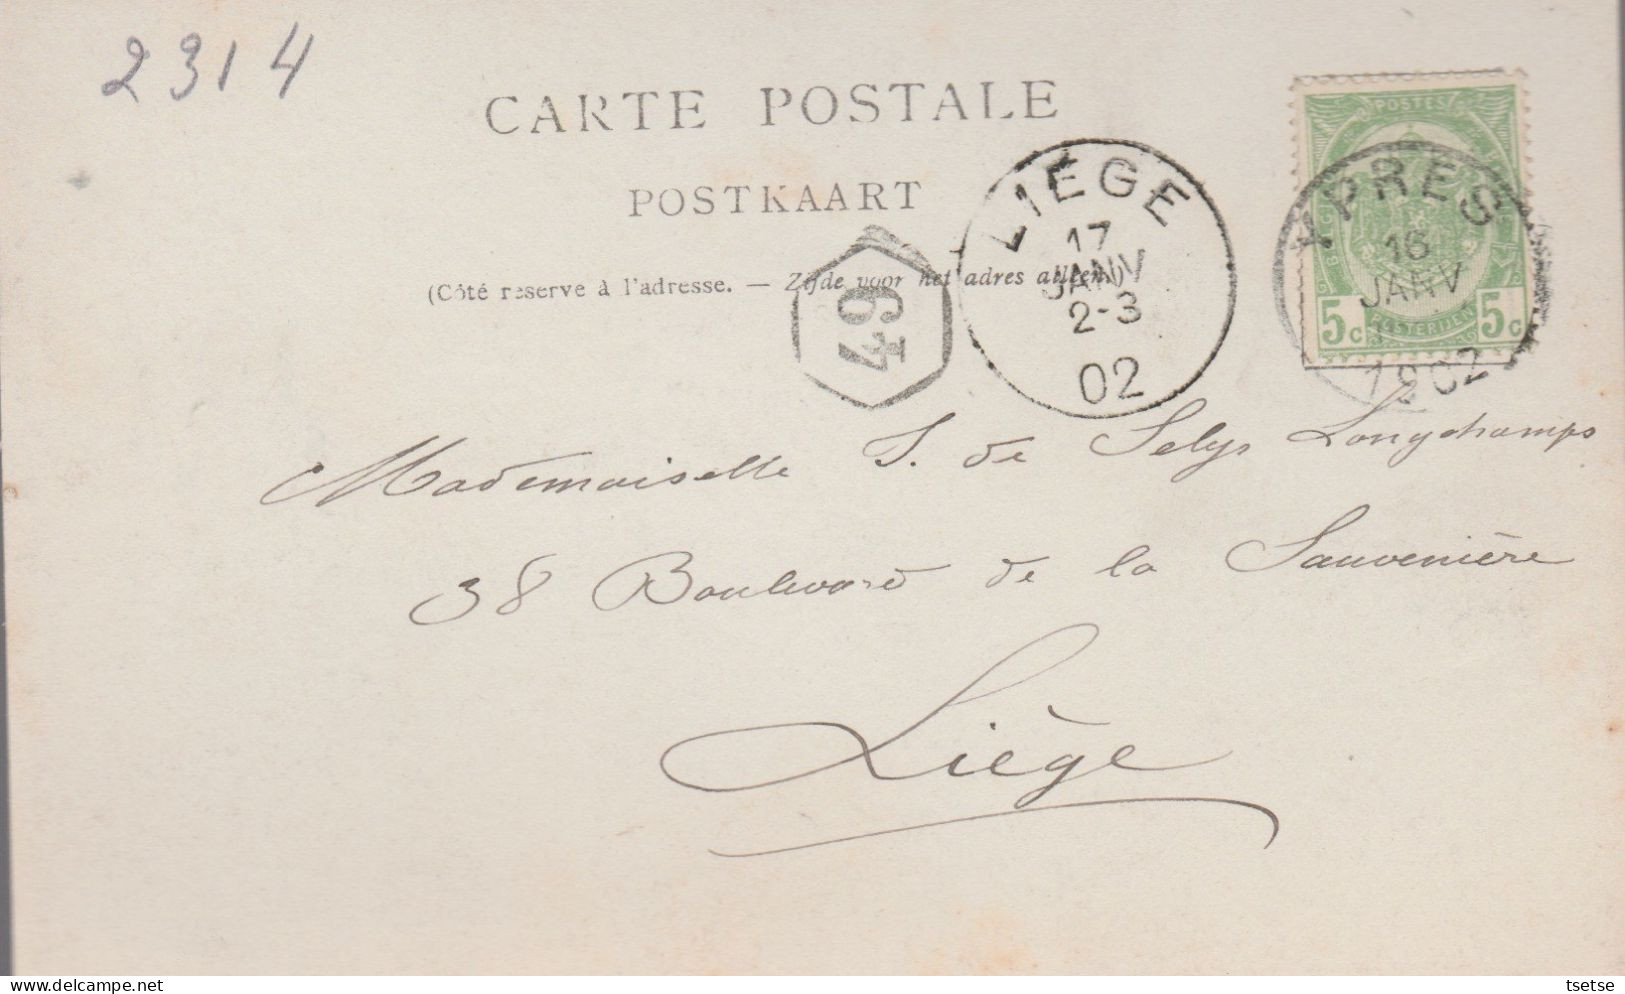 2314
CARTE POSTALE
POSTKAART
(Côté reservé à l'adresse. — Zijde voor het adres alleen.)
LIEGE
17
JANV
2-3
02
POSTES
YPRES
16
JANV
1902
5c POSTERIJEN 5c
Mademoiselle S. de Selys Longchamps
38 Boulevard de la Sauvenière
Liège
tsetse